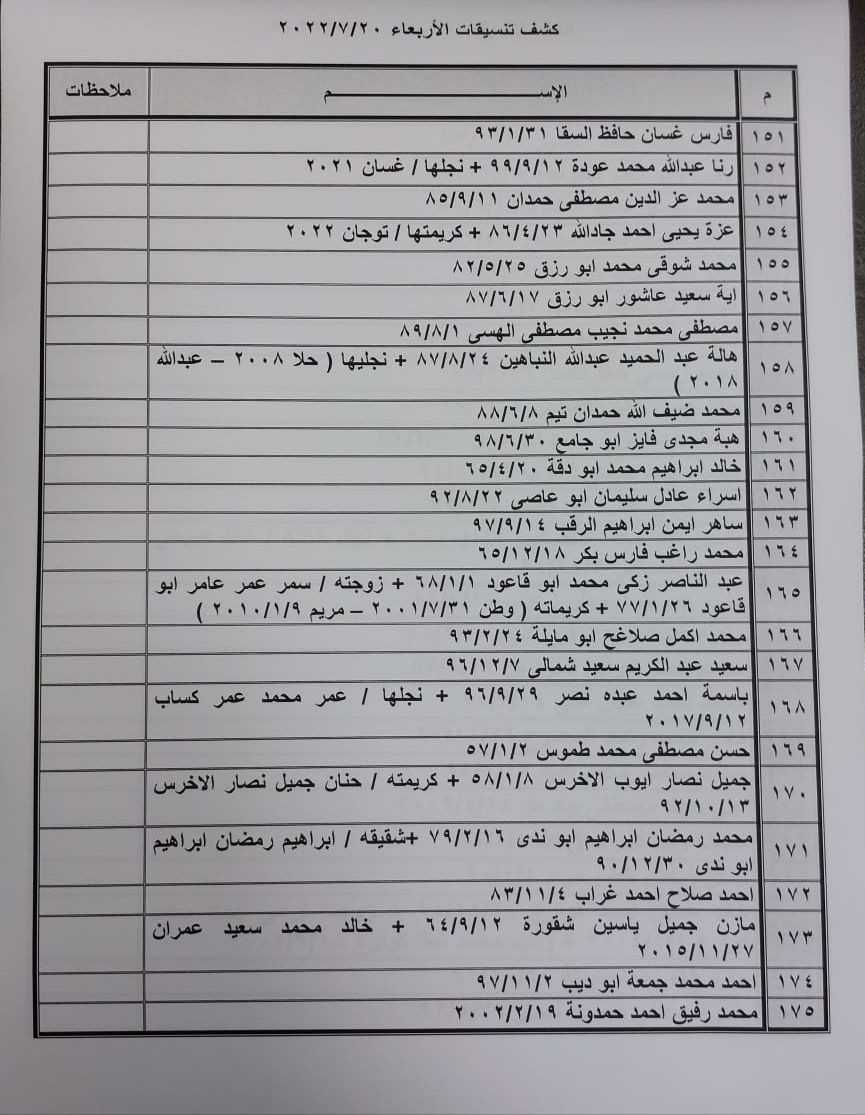 كشف تنسيقات الأربعاء ٢٠٢٢/٧/٢٠
م الإســـــــــــــــم ملاحظات
١٥١ فارس غسان حافظ السقا ٩٣/١/٣١
١٥٢ رنا عبدالله محمد عودة ٩٩/٩/١٢ + نجلها / غسان ٢٠٢١
١٥٣ محمد عز الدين مصطفى حمدان ٨٥/٩/١١
١٥٤ عزة يحيى احمد جادالله ٨٦/٤/٢٣ + كريمتها / توجان ٢٠٢٢
١٥٥ محمد شوقى محمد ابو رزق ٨٢/٥/٢٥
١٥٦ اية سعيد عاشور ابو رزق ٨٧/٦/١٧
١٥٧ مصطفى محمد نجيب مصطفى الهسى ٨٩/٨/١
١٥٨ هالة عبد الحميد عبدالله النباهين ٨٧/٨/٢٤ + نجليها ( حلا ٢٠٠٨ – عبدالله
٢٠١٨ )
١٥٩ محمد ضيف الله حمدان تيم ٨٨/٦/٨
١٦٠ هبة مجدى فايز ابو جامع ٩٨/٦/٣٠
١٦١ خالد ابراهيم محمد ابو دقة ٦٥/٤/٢٠
١٦٢ اسراء عادل سليمان ابو عاصى ٩٢/٨/٢٢
١٦٣ ساهر ايمن ابراهيم الرقب ٩٧/٩/١٤
١٦٤ محمد راغب فارس بكر ٦٥/١٢/١٨
١٦٥ عبد الناصر زكى محمد ابو قاعود ٦٨/١/١ + زوجته / سمر عمر عامر ابو
قاعود ٧٧/١/٢٦ + كريماته ( وطن ٢٠٠١/٧/٣١ – مريم ٢٠١٠/١/٩ )
١٦٦ محمد اكمل صلاغح ابو مايلة ٩٣/٢/٢٤
١٦٧ سعيد عبد الكريم سعيد شمالى ٩٦/١٢/٧
١٦٨ باسمة احمد عبده نصر ٩٦/٩/٢٩ + نجلها / عمر محمد عمر كساب
٢٠١٧/٩/١٢
١٦٩ حسن مصطفى محمد طموس ٥٧/١/٢
١٧٠ جميل نصار ايوب الاخرس ٥٨/١/٨ + كريمته / حنان جميل نصار الاخرس
٩٢/١٠/١٣
١٧١ محمد رمضان ابراهيم ابو ندى ٧٩/٢/١٦ +شقيقه / ابراهيم رمضان ابراهيم
ابو ندى ٩٠/١٢/٣٠
١٧٢ احمد صلاح احمد غراب ٨٣/١١/٤
١٧٣ مازن جميل ياسين شقورة ٦٤/٩/١٢ + خالد محمد سعيد عمران
٢٠١٥/١١/٢٧
١٧٤ احمد محمد جمعة ابو ديب ٩٧/١١/٢
١٧٥ محمد رفيق احمد حمدونة ٢٠٠٢/٢/١٩